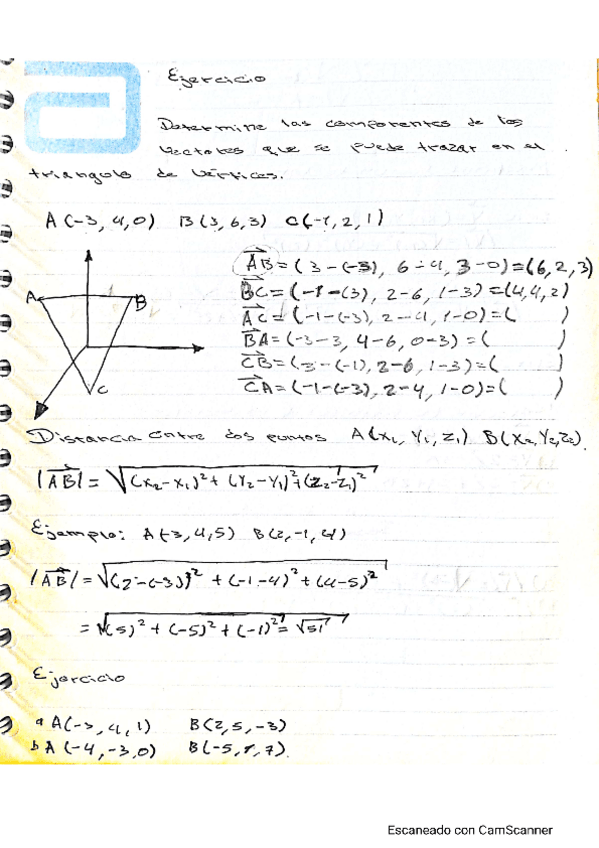 Ejercicio
Determine las componentes de los
vectores que se puede trazar en el
triangulo de vértices.
A(-3, 4, 0) B(3, 6, 3) C(-1, 2, 1)
AB = (3-(-3), 6-4, 3-0) = (6, 2, 3)
BC = (-1-(3), 2-6, 1-3) = (4, 4, 2)
AC = (-1-(-3), 2-4, 1-0) = ( )
BA = (-3-3, 4-6, 0-3) = ( )
CB = (3-(-1), 2-6, 1-3) = ( )
CA = (-1-(-3), 2-4, 1-0) = ( )
A
B
C
Distancia entre dos puntos A(x₁, Y₁, Z₁) B(X₂, Y₂, Z₂).
|AB| = √(x₂-x₁)² + (Y₂-Y₁)² + (Z₂-Z₁)²
Ejemplo: A(-3, 4, 5) B(2, -1, 4)
|AB| = √(2-(-3))² + (-1-4)² + (4-5)²
= √(5)² + (-5)² + (-1)² = √51
Ejercicio
a A(-3, 4, 1) B(2, 5, -3)
b A(-4, -3, 0) B(-5, 1, 7).
Escaneado con CamScanner